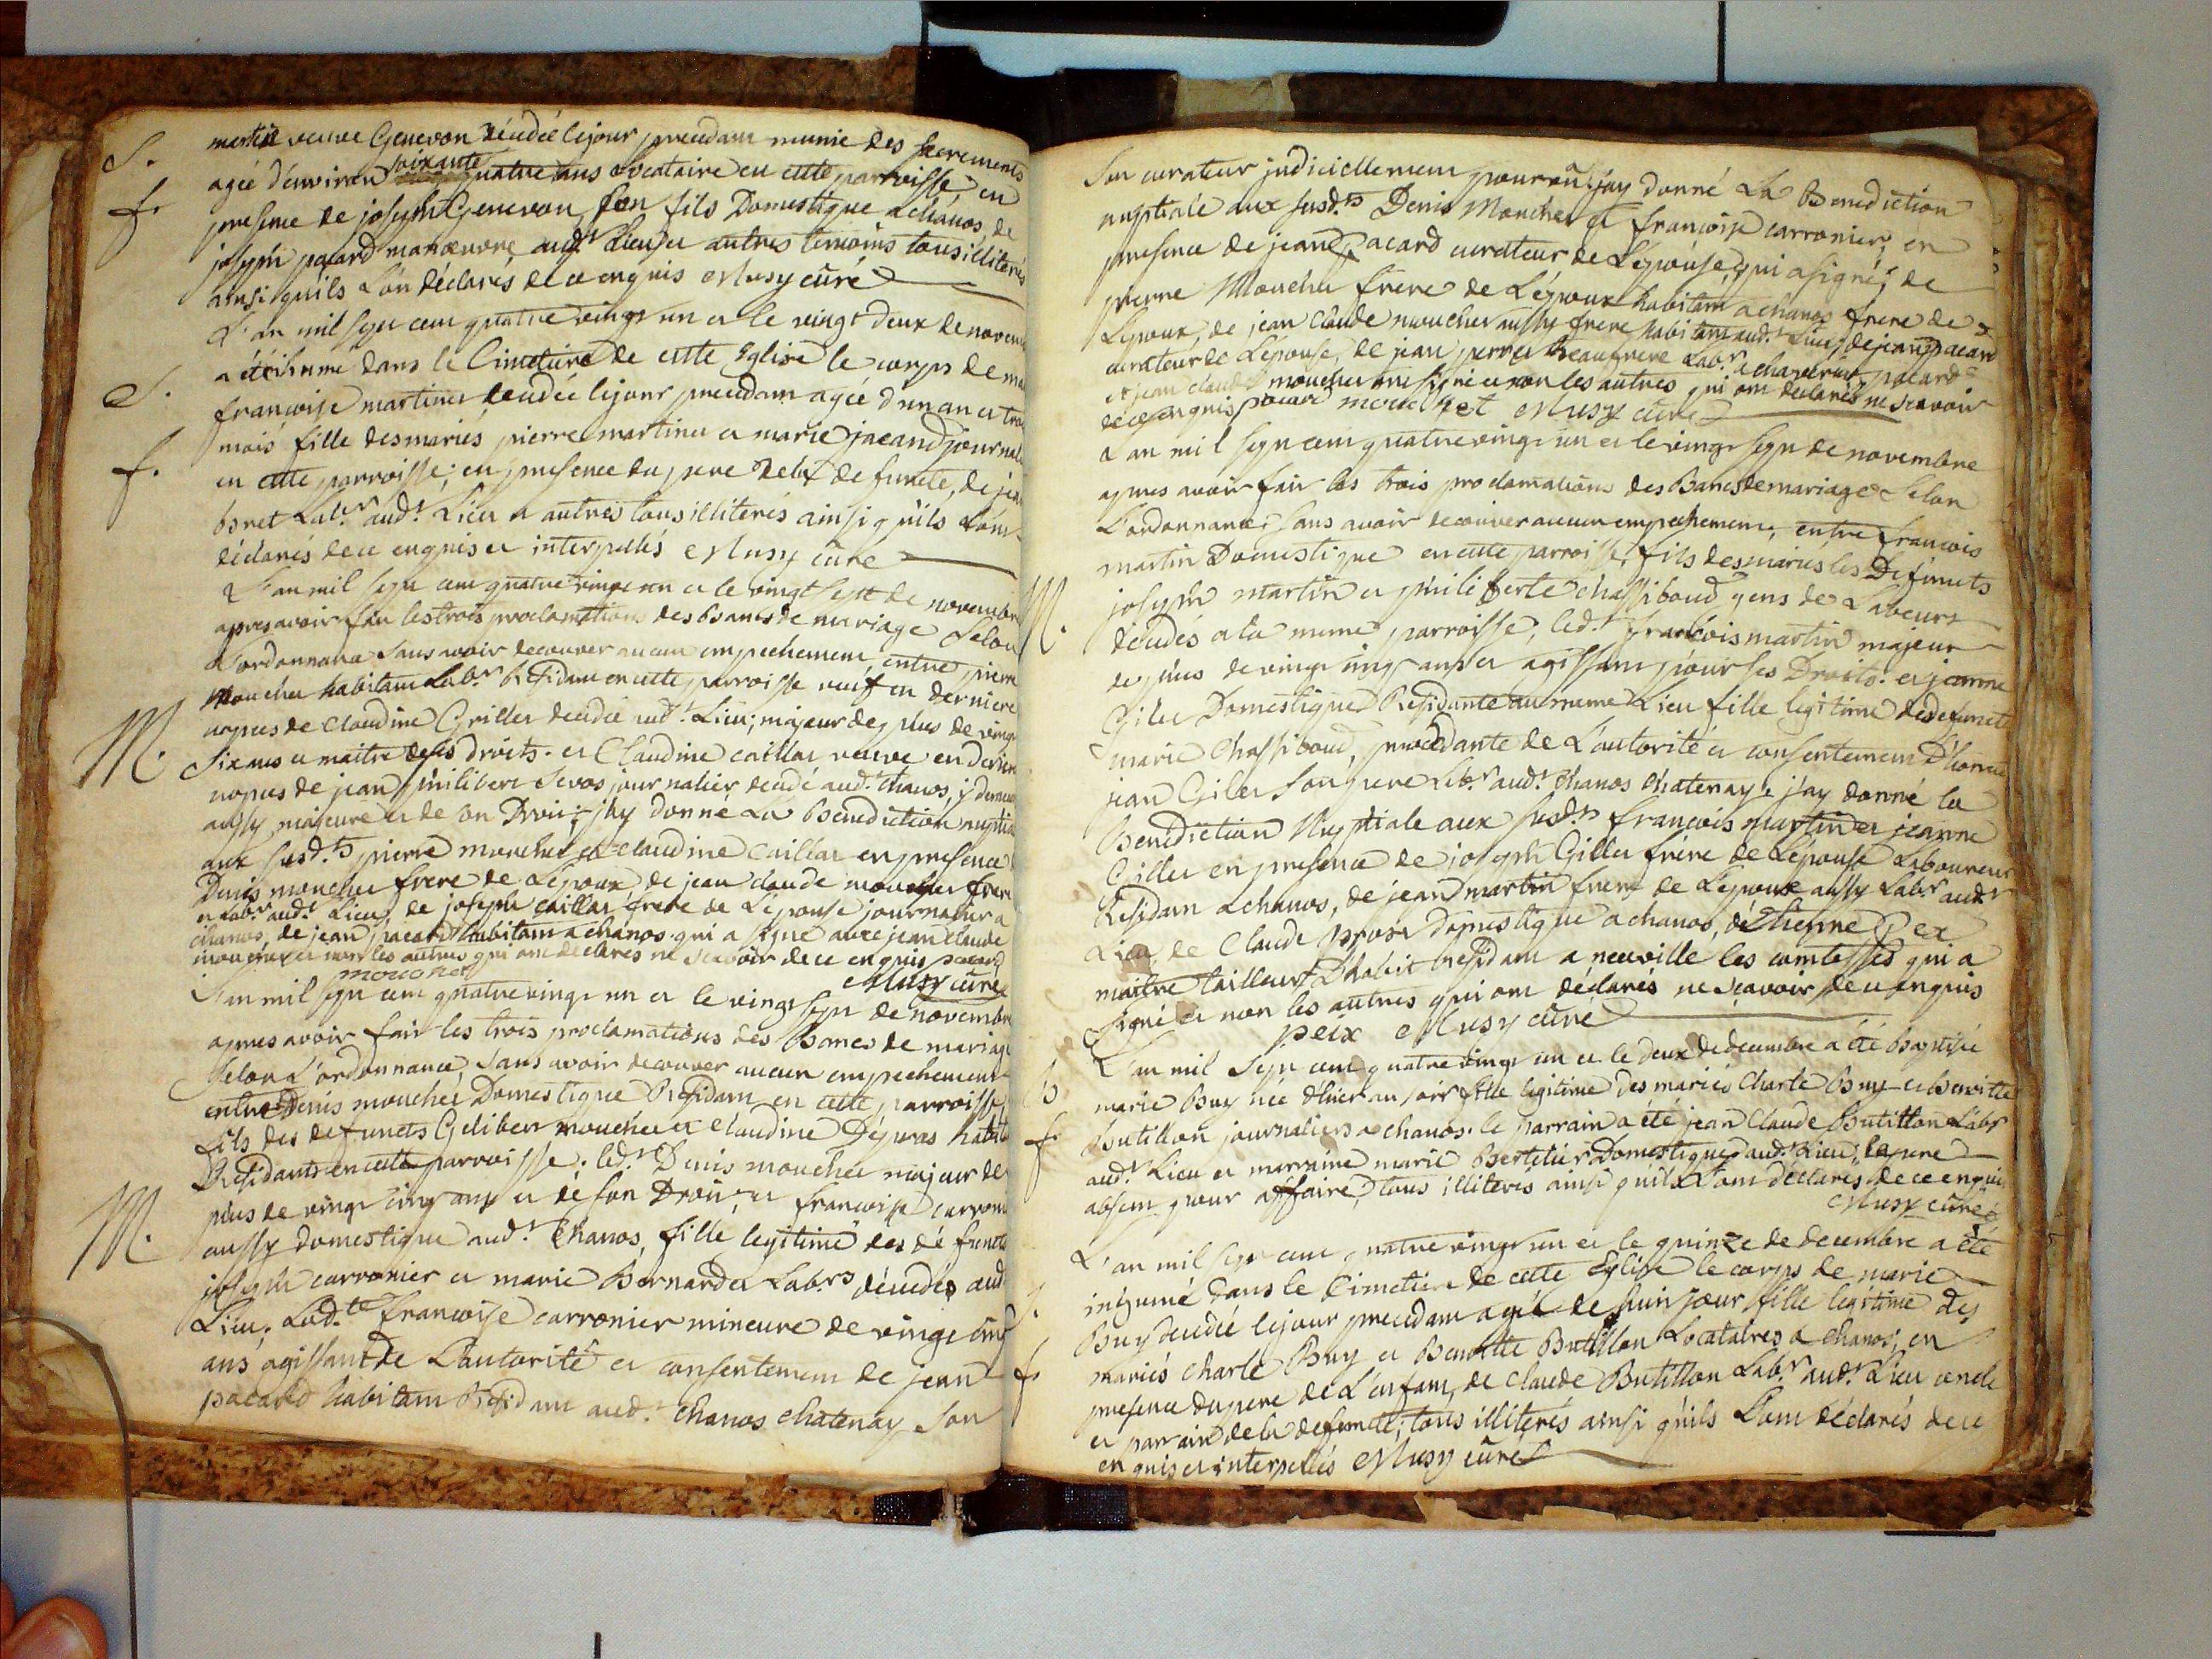 S. martin veuve Genevon décédée le jour precedant munie des sacrements
agée d'environ soixante quatre ans locataire en cette parroisse, en
f. presence de joseph Genevon son fils Domestique a chanos, de
joseph pacard manœuvre aud.t Lieu et autres temoins tous illiterés
ainsi qu'ils L'on déclarés de ce enquis Musy curé
L'an mil sept cent quatre vingt un et le vingt deux de novem
a été ihumé dans le Cimetiere de cette Eglise le corps de
S. francoise martinet decedée le jour precedam agée d'un an et trois
mois fille des mariés pierre martinet et marie jacand journal
f. en cette parroisse; en presence du pere de lad defuncte, de jean
Bret Lab.r aud.t Lieu et autres tous illiterés ainsi qu'ils L'om
déclarés de ce enquis et interpellés Musy curé
L'an mil sept cent quatre vingt un et le vingt sept de novembre
apres avoir fait les trois proclamations des Bancs de mariage Selon
L'ordonnance sans avoir decouver aucun empechement, entre pierre
Moucher habitam Lab.r Residam en cette parroisse veuf en derniere
nopces de Claudine Griller decedée aud.t Lieu; majeur de plus de vingt
M. Six ans et maitre de ses droits. et Claudine caillat veuve en dernier
nopces de jean philibert Sevos journalier decedé aud.t chanos, y demeu
aussy majeure et de son Droit; j'ay donné La Benediction nuptia
aux susd.ts pierre moucher et claudine caillat en presence
Denis moucher frere de L'époux de jean claude moucher frere
et Lab.r aud.t Lieu, de joseph caillat frere de L'épouse journalier a
chanos, de jean pacard habitam a chanos qui a signé avec jean Claude
moucher et non les autres qui om declarés ne scavoir de ce enquis pacard
moucher Musy curé
L'an mil sept cent quatre vingt un et le vingt sept de novembre
apres avoir fait les trois proclamations des Bancs de mariage
selon L'ordonnance, sans avoir decouver aucun empechement
entre Denis moucher Domestique Residam en cette parroisse,
fils des defuncts Gelibert moucher et Claudine Depras habit
Residants en cette parroisse. led.t Denis moucher majeur de
plus de vingt cinq ans et de son Droit; et francoise carroni
M. aussy domestique aud.t Chanos, fille legitime des défuncts
joseph carronier et marie Bernardet Lab.rs décedés aud
Lieu. Lad.te francoise carronier mineure de vingt cinq
ans agissant de L'autorité et consentement de jean
pacard habitam Residam aud.t Chanos Chatenay son
Son curateur judiciellement pourvû. j'ay donné La Benediction
nuptiale aux susd.ts Denis Moucher et francoise carronier, en
presence de jean pacard curateur de L'épouse, qui a signé, de
pierre Moucher frere de L'époux habitam a chanos frere de
L'epoux, de jean Claude moucher aussy frere habitam aud.t Lieu, de jean pacard
curateur de L'épouse, de jean perret beaufrere Lab.r a chaveriat pacard
et jean claude moucher om signé et non les autres qui om declarés ne scavoir
de ce enquis pacard moucher Musy curé
L'an mil sept cent quatre vingt un et le vingt sept de novembre
apres avoir fait les trois proclamations des Bancs de mariage Selon
L'ordonnance, sans avoir decouver aucun empechement, entre francois
martin Domestique en cette parroisse, fils des mariés les Defuncts
M. joseph martin et philiberte chassiboud gens de Labeurs
décedés a la meme parroisse, led.t francois martin majeur
de plus de vingt cinq ans et agissam pour ses Droits. et jeanne
Giler Domestique Residante au meme Lieu fille legitime de defunct
marie Chassiboud, procedante de L'autorité et consentement D'honnete
jean Giler son pere Lab.r aud.t Chanos Chatenay, j'ay donné la
Benediction Nuptiale aux susd.ts francois martin et jeanne
Giller en presence de joseph Giller frere de L'épouse Laboureur
Residam a chanos, de jean martin frere de L'époux aussy Lab.r aud.t
Lieu, de Claude Prost domestique a chanos, d'Etienne Pex
maitre tailleur D'habit residam a neuville les comtesses qui a
signé et non les autres qui om déclarés ne scavoir de ce enquis
peix Musy curé
L'an mil sept cent quatre vingt un et le deux de decembre a été Baptisée
B. marie Buy née d'hier au soir fille legitime des mariés Charle Buy et Benoitte
f. Butillon journaliers a chanos. le parrain a été jean Claude Butillon Lab.r
aud.t Lieu et marraine marie Bertelier Domestique aud.t Lieu; le pere
absem pour affaire, tous illiteres ainsi qu'ils L'om déclarés de ce enquis
Musy curé
L'an mil sept cent quatre vingt un et le quinze de decembre a été
S. inhumé dans le Cimetiere de cette Eglise le corps de marie
Buy decedée le jour precedam agée de huit jour fille legitime des
f. mariés Charle Buy et Benoitte Butillon Locataires a Chanos; en
presence du pere de L'enfam, de Claude Butillon Lab.r aud.t Lieu oncle
et parrain de la defuncte; tous illiterés ainsi qu'ils L'om déclarés de ce
enquis et interpellés Musy curé